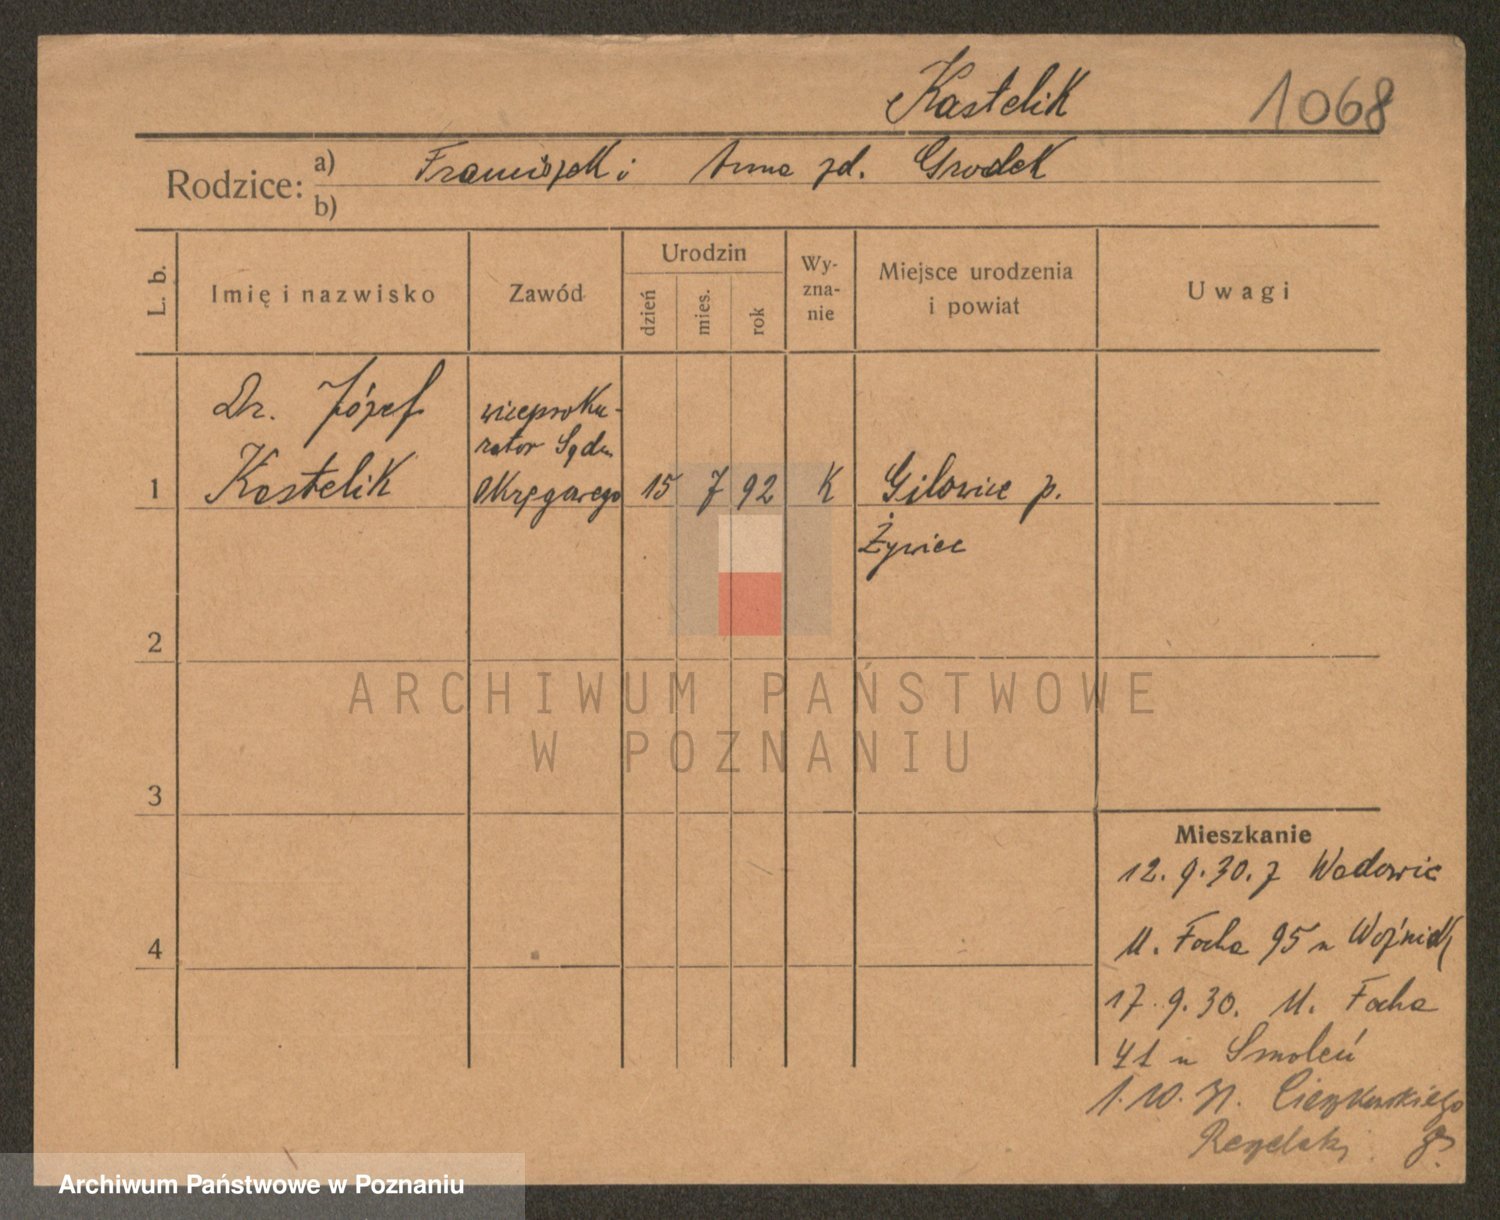 Kastelik 1068
Rodzice: a) Franciszek i Anna zd. Grodek
b)
L. b. Imię i nazwisko Zawód Urodzin dzień mies. rok Wy-zna-nie Miejsce urodzenia i powiat Uwagi
Dr. Józef wiceproku-
rator Sądu
1 Kastelik Okręgowego 15 7 92 K Gilowice p.
Żywiec
2
ARCHIWUM PAŃSTWOWE
W POZNANIU
3
Mieszkanie
12. 9. 30. z Wadowic
M. Focha 95 u Woźniak
4
17. 9. 30. M. Focha
41 u Smoleń
1. 10. 31. Cieszkowskiego
Archiwum Państwowe w Poznaniu